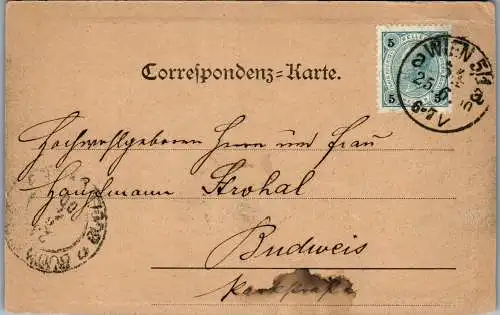 Correspondenz-Karte.
5 5
WIEN 5/1
25
Hochwohlgeboren Herrn und Frau
Hauptmann Strohal
Budweis